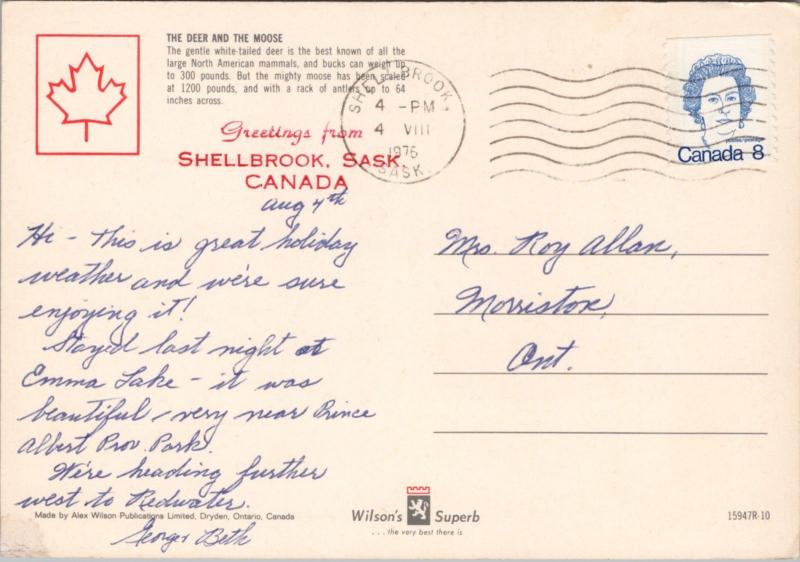 THE DEER AND THE MOOSE
The gentle white-tailed deer is the best known of all the
large North American mammals, and bucks can weigh up
to 300 pounds. But the mighty moose has been scaled
at 1200 pounds, and with a rack of antlers up to 64
inches across.
SHELLBROOK
4 -PM
4 VIII
1976
SASK.
Canada 8
Greetings from
SHELLBROOK, SASK.
CANADA
Aug 4th
Hi - This is great holiday
weather and we're sure
enjoying it!
Stayed last night at
Emma Lake - it was
beautiful - very near Prince
Albert Prov. Park.
We're heading further
west to Redwater.
George Beth
Mrs. Roy Allan,
Morriston,
Ont.
Made by Alex Wilson Publications Limited, Dryden, Ontario, Canada
Wilson's Superb
...the very best there is
15947R-10